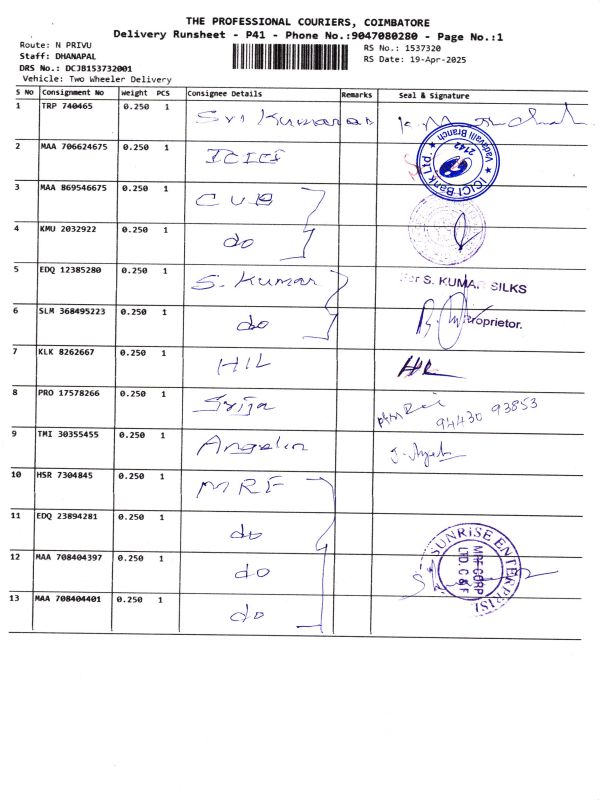 THE PROFESSIONAL COURIERS, COIMBATORE
Delivery Runsheet - P41 - Phone No.:9047080280 - Page No.:1
Route: N PRIVU
Staff: DHANAPAL
DRS No.: DCJB153732001
Vehicle: Two Wheeler Delivery
RS No.: 1537320
RS Date: 19-Apr-2025
S No Consignment No Weight PCS Consignee Details Remarks Seal & Signature
1 TRP 740465 0.250 1 Sri Kumaran
2 MAA 706624675 0.250 1 ICICI
ICICI Bank Ltd. ★ Vadavalli Branch ★ 2142
3 MAA 869546675 0.250 1 CUB
4 KMU 2032922 0.250 1 do
5 EDQ 12385280 0.250 1 S. Kumar
For S. KUMAR SILKS
6 SLM 368495223 0.250 1 do
Proprietor.
7 KLK 8262667 0.250 1 HIL
8 PRO 17578266 0.250 1 Srija
94430 93853
9 TMI 30355455 0.250 1 Angelin
10 HSR 7304845 0.250 1 MRF
11 EDQ 23894281 0.250 1 do
12 MAA 708404397 0.250 1 do
SUNRISE ENTERPRISE
MRF CORP
LTD. C & F
13 MAA 708404401 0.250 1 do